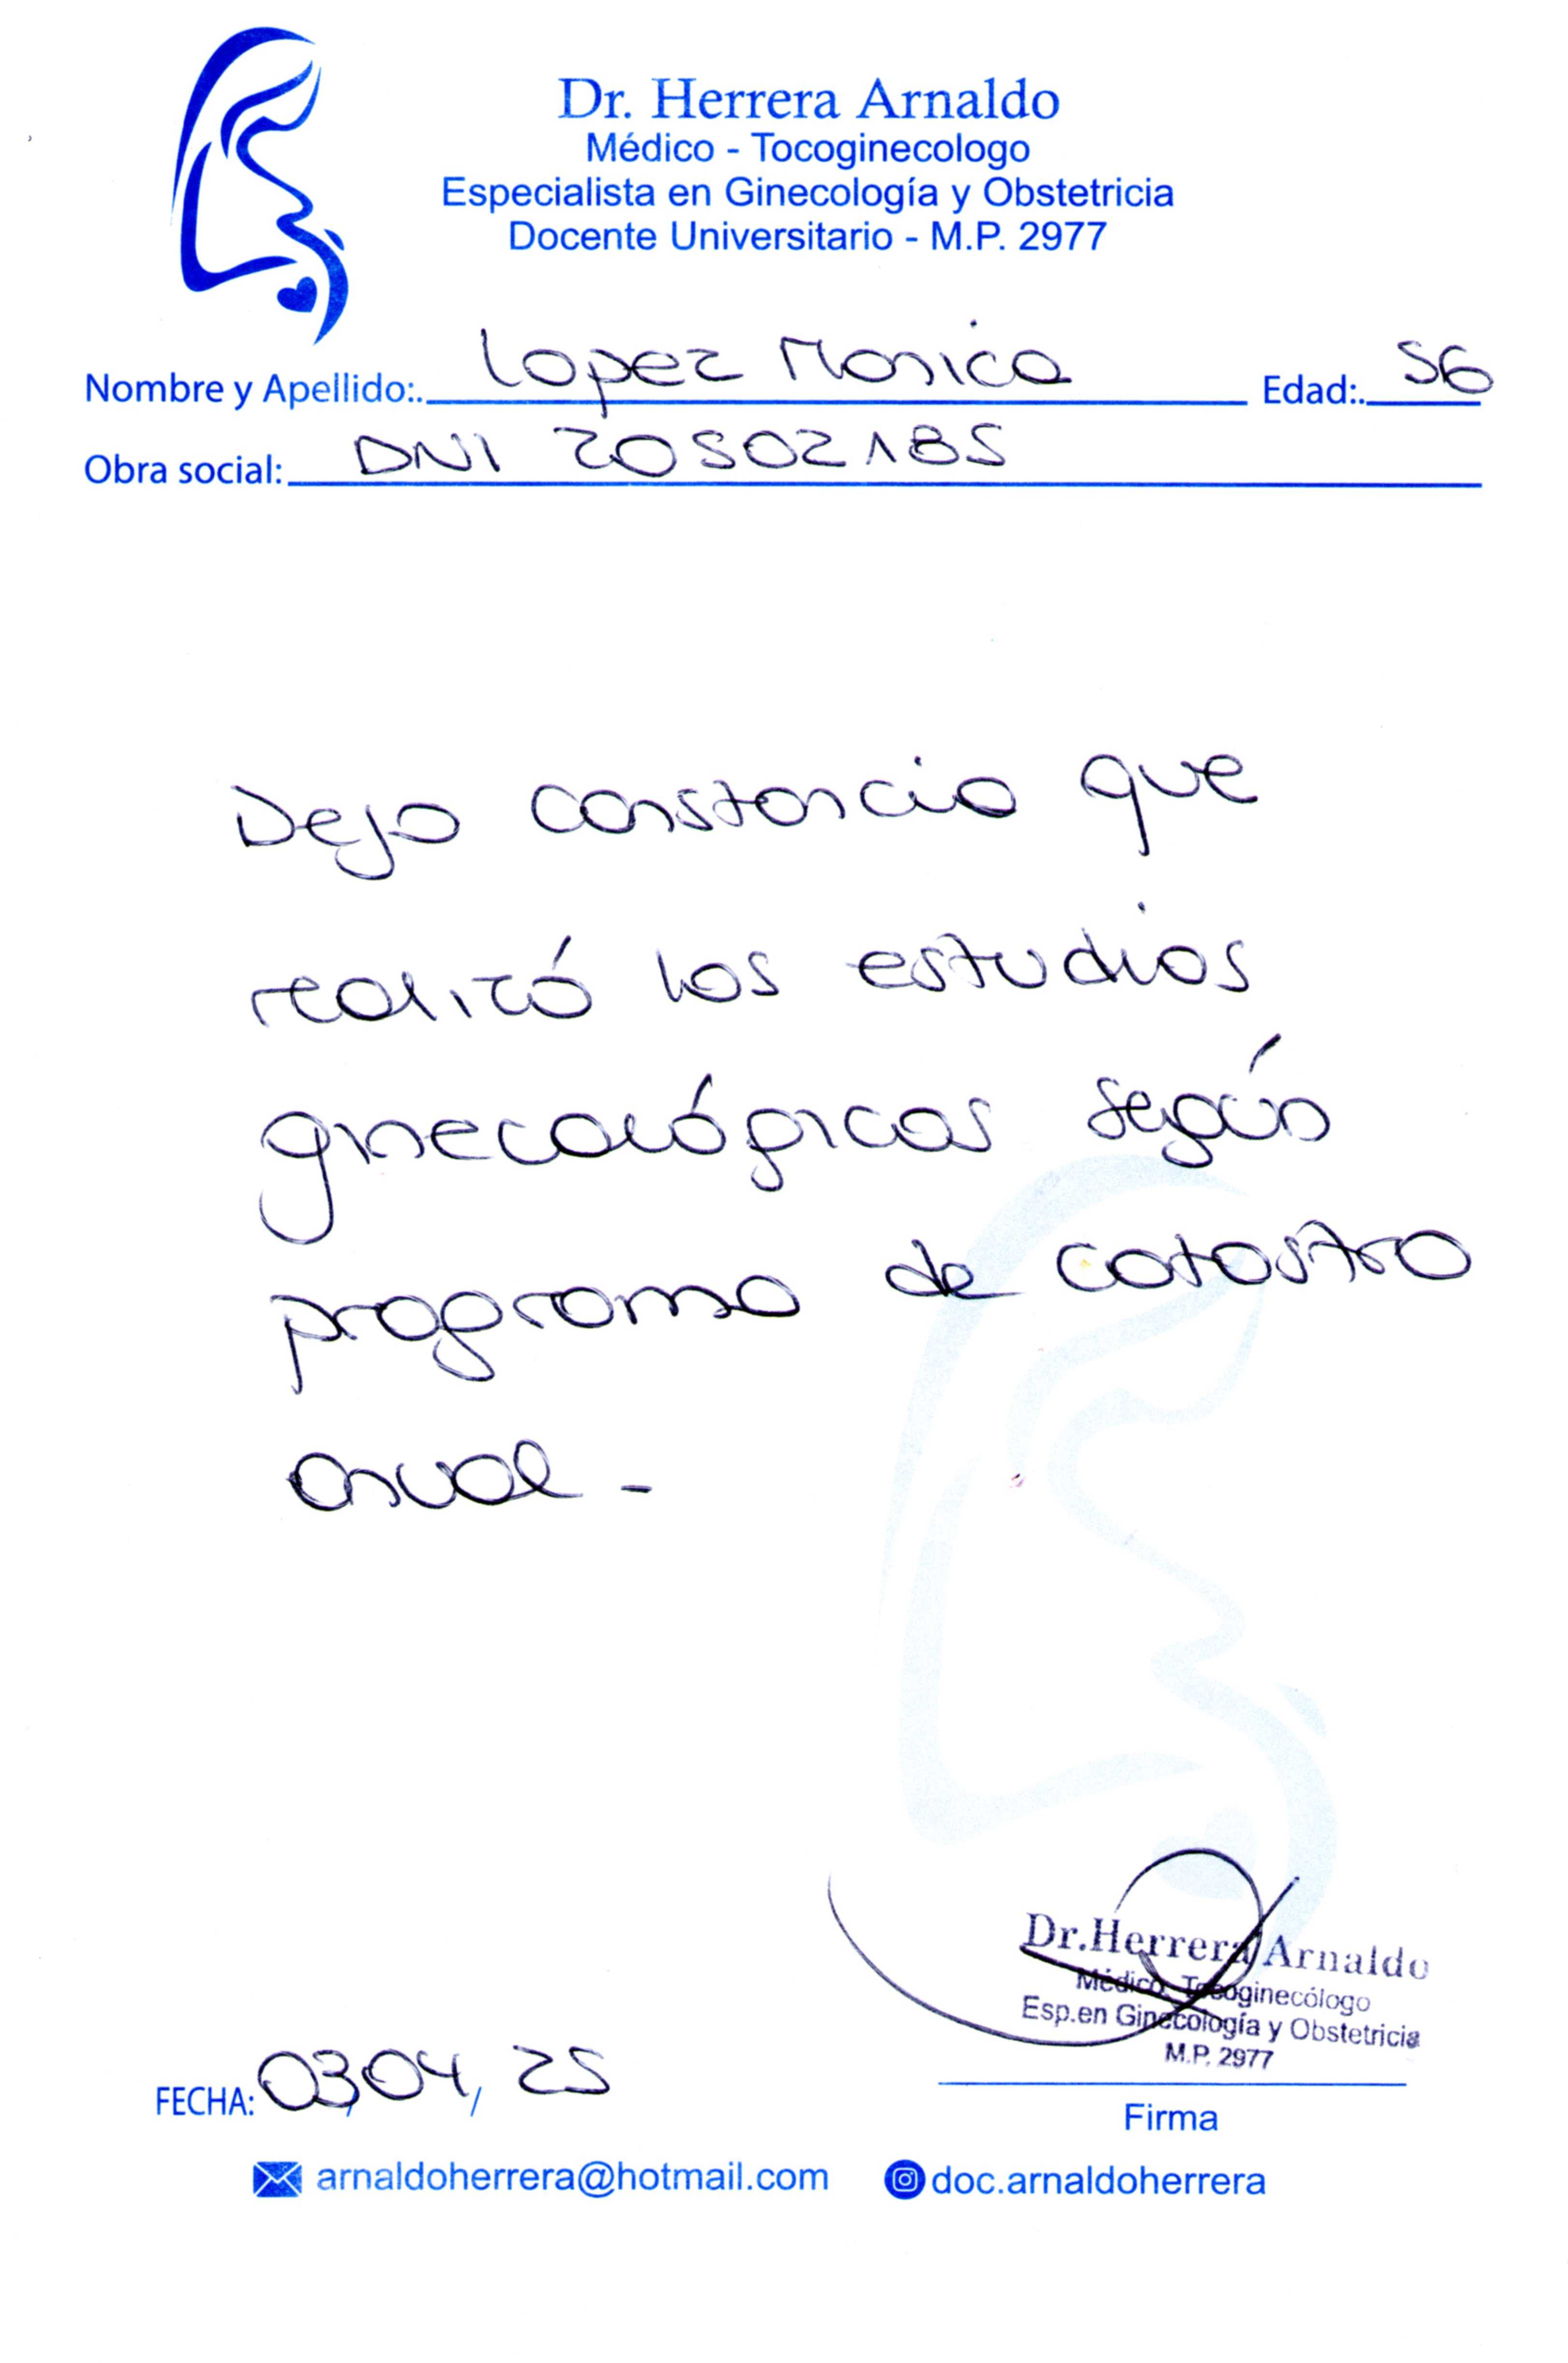 Dr. Herrera Arnaldo
Médico - Tocoginecologo
Especialista en Ginecología y Obstetricia
Docente Universitario - M.P. 2977
Nombre y Apellido:. Lopez Monica Edad:. 56
Obra social: DNI 20502185
Dejo constancia que
realizó los estudios
ginecológicos según
programa de catastro
anual -
Dr.Herrera Arnaldo
Médico Tocoginecólogo
Esp.en Ginecología y Obstetricia
M.P. 2977
FECHA: 03/04/25
Firma
arnaldoherrera@hotmail.com doc.arnaldoherrera